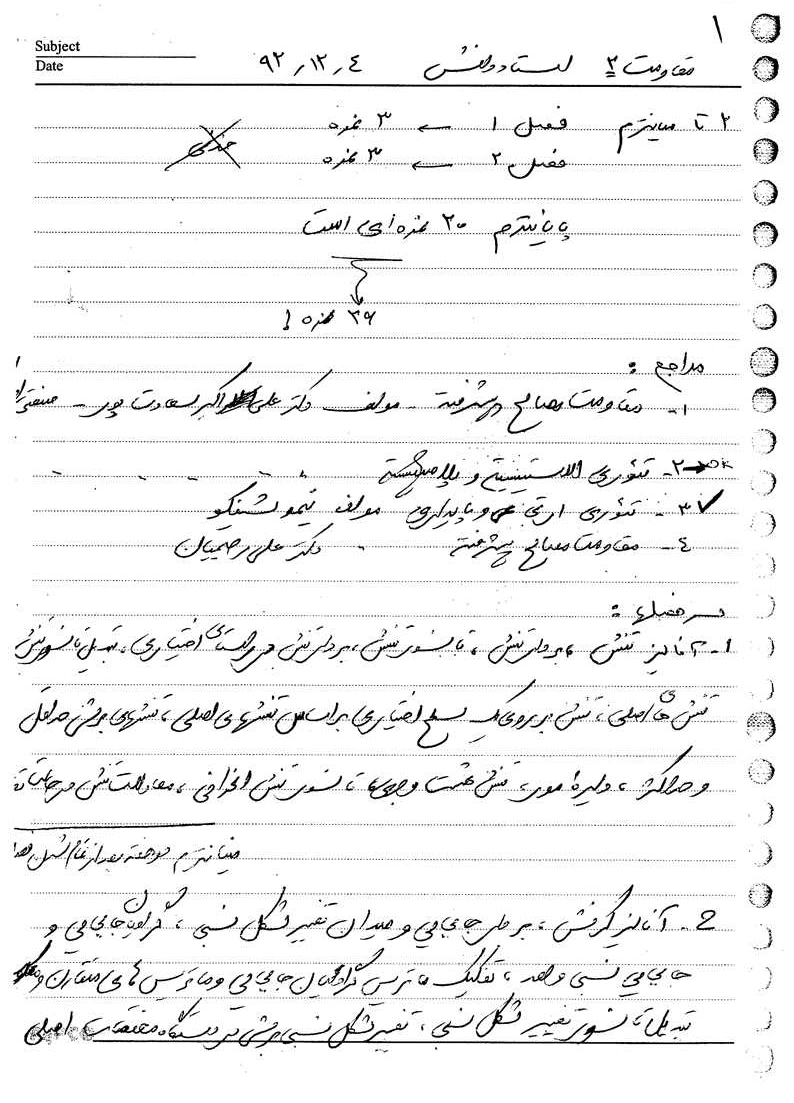 ۱
Subject
Date
مقاومت ۳ استاد دانش ۹۲,۱۲,۴
۲ تا میانترم فصل ۱ ← ۳ نمره
فصل ۲ ← ۳ نمره حذفی
پایانترم ۲۰ نمره‌ای است
۲۶ نمره !
مراجع :
۱- مقاومت مصالح پیشرفته - مولف دکتر علی اکبر سعادت پور - صنعتی
۲- تئوری الاستیسیته و پلاستیسیته
۳- تئوری ارتجاعی و پایداری مولف تیموشینکو
۴- مقاومت مصالح پیشرفته دکتر علی رحیمیان
سرفصلها :
۱- آنالیز تنش ، بردار تنش ، تانسور تنش ، بردار تنش در راستای اختیاری ، تبدیل تانسور تنش
تنش های اصلی ، تنش بر روی یک سطح اختیاری بر اساس تنشهای اصلی ، تنشهای برشی حداقل
و حداکثر ، دایره مور ، تنش هشت وجهی ، تانسور تنش انحرافی ، معادلات تنش در
میانترم دو هفته بعد از تمام شدن
2- آنالیز کرنش ، بردار جابجایی و میدان تغییر شکل نسبی ، گرادیان جابجایی و
جابجایی نسبی واحد ، تفکیک ماتریس گرادیان جابجایی و ماتریس های متقارن و
تبدیل تانسور تغییر شکل نسبی ، تغییر شکل نسبی برشی در دستگاه مختصات اصلی